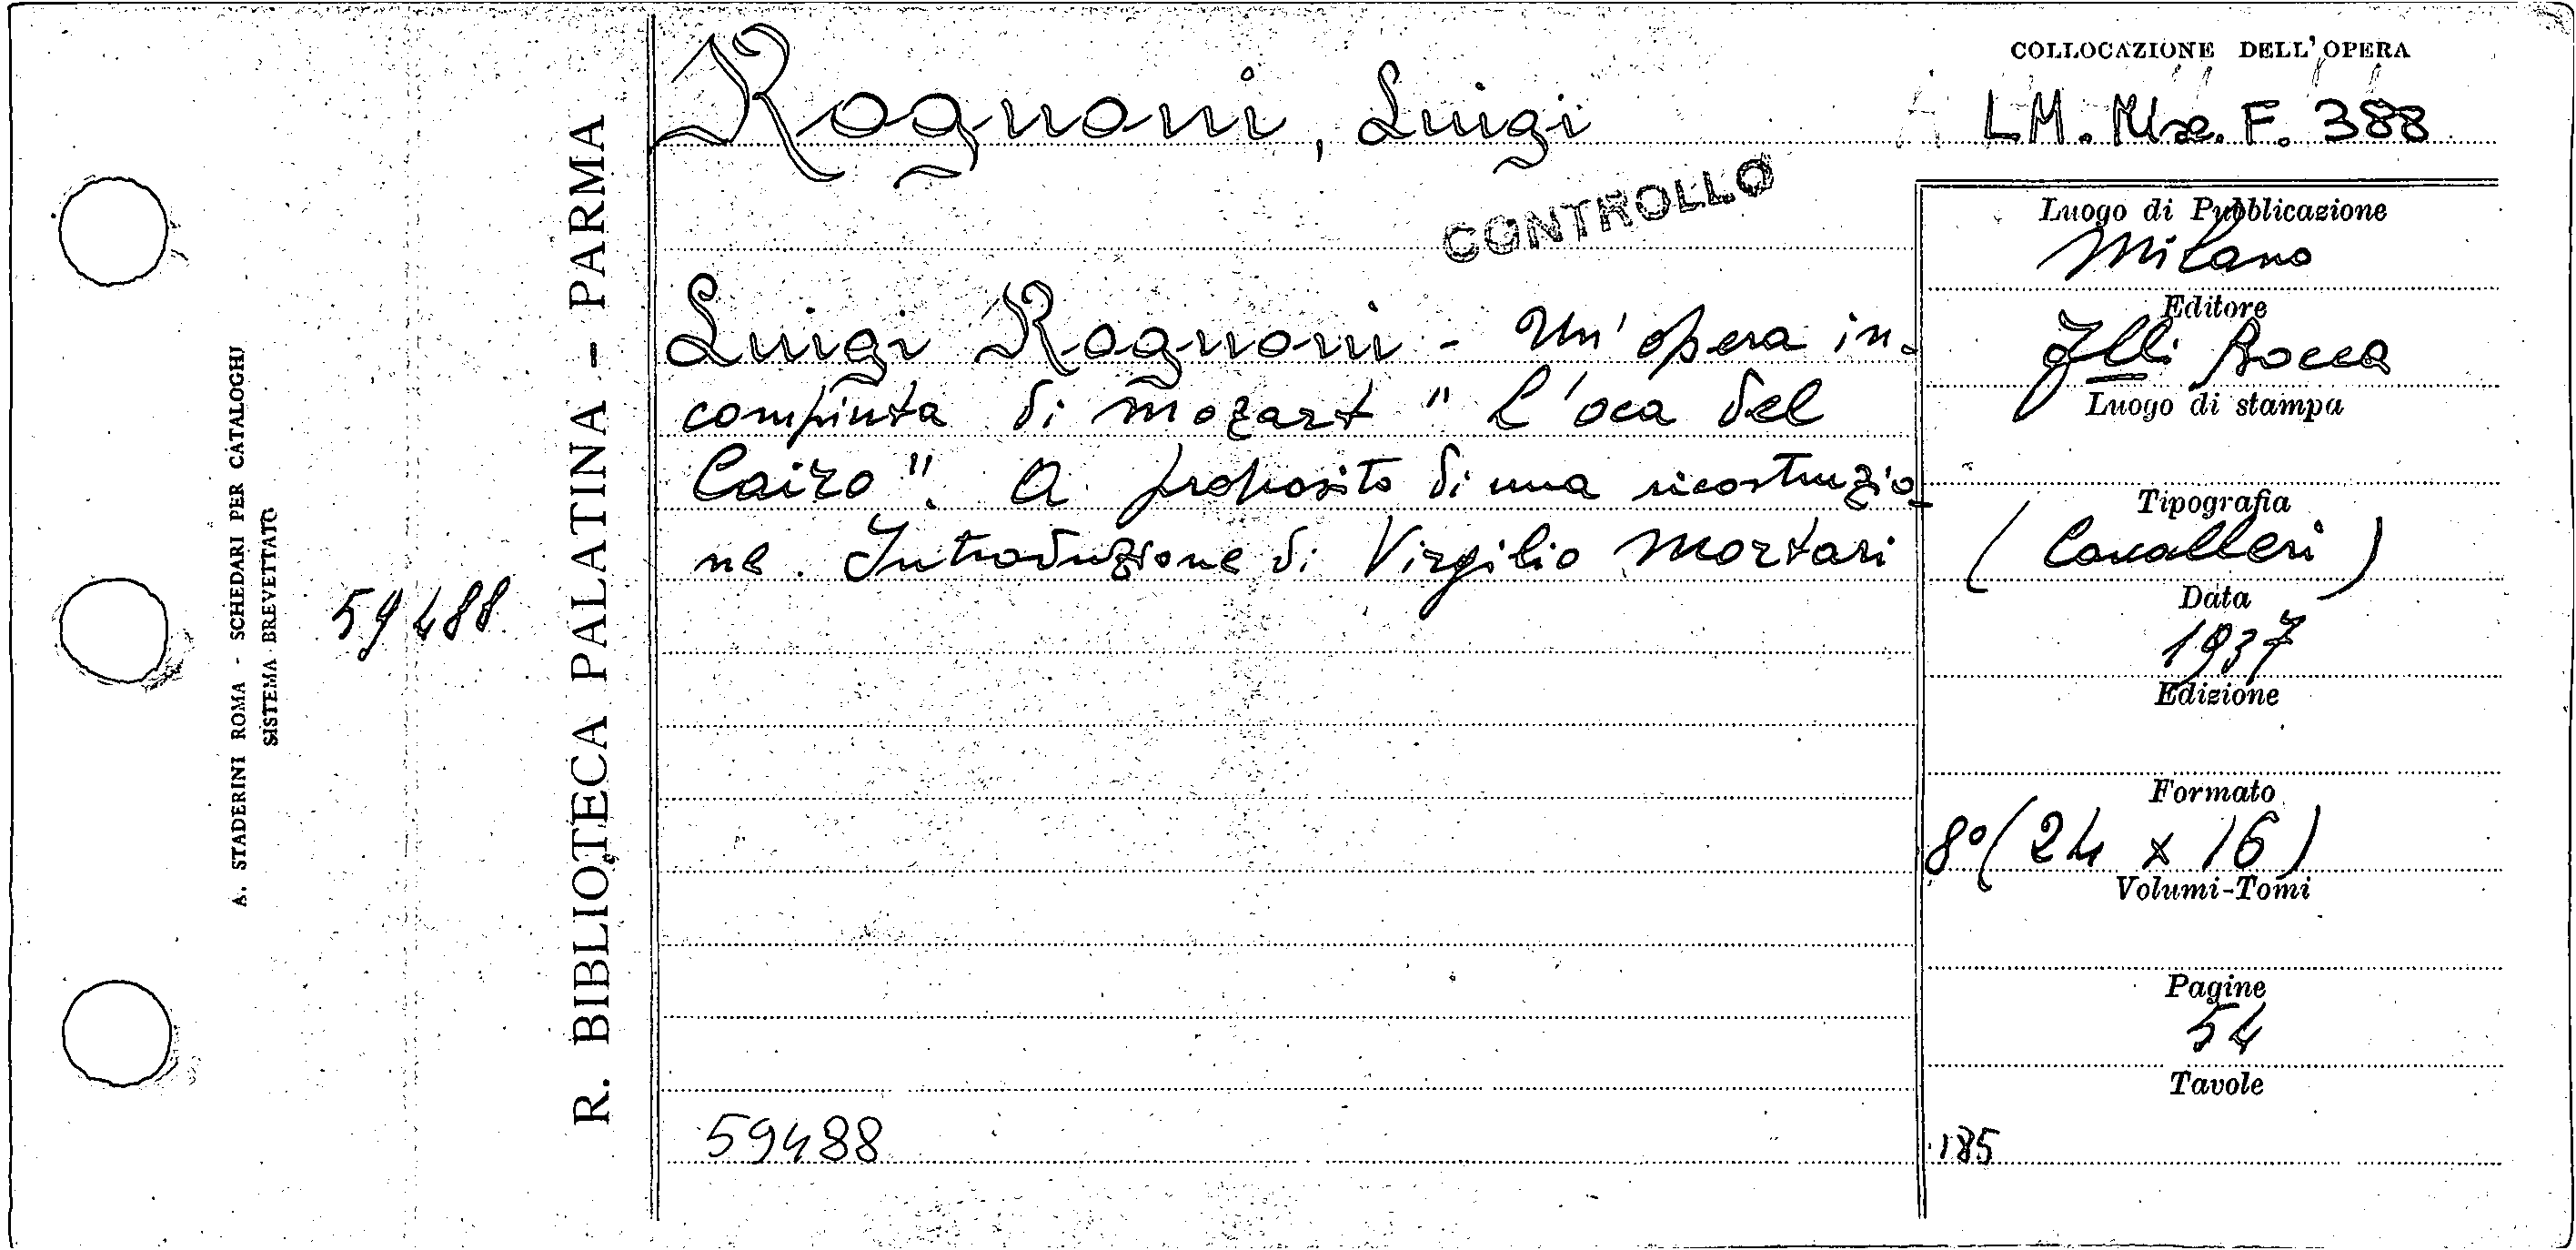 A. STADERINI ROMA - SCHEDARI PER CATALOGHI
SISTEMA BREVETTATO
59488
R. BIBLIOTECA PALATINA - PARMA
Rognoni, Luigi
CONTROLLO
Luigi Rognoni - Un'opera in-
compiuta di Mozart "L'oca del
Cairo". A proposito di una ricostruzio-
ne. Introduzione di Virgilio Mortari
59488
COLLOCAZIONE DELL'OPERA
LM. F. 388
Luogo di Pubblicazione
Milano
Editore
Flli Bocca
Luogo di stampa
Tipografia
(Cavalleri)
Data
1937
Edizione
Formato
8° (24 x 16)
Volumi-Tomi
Pagine
54
Tavole
185